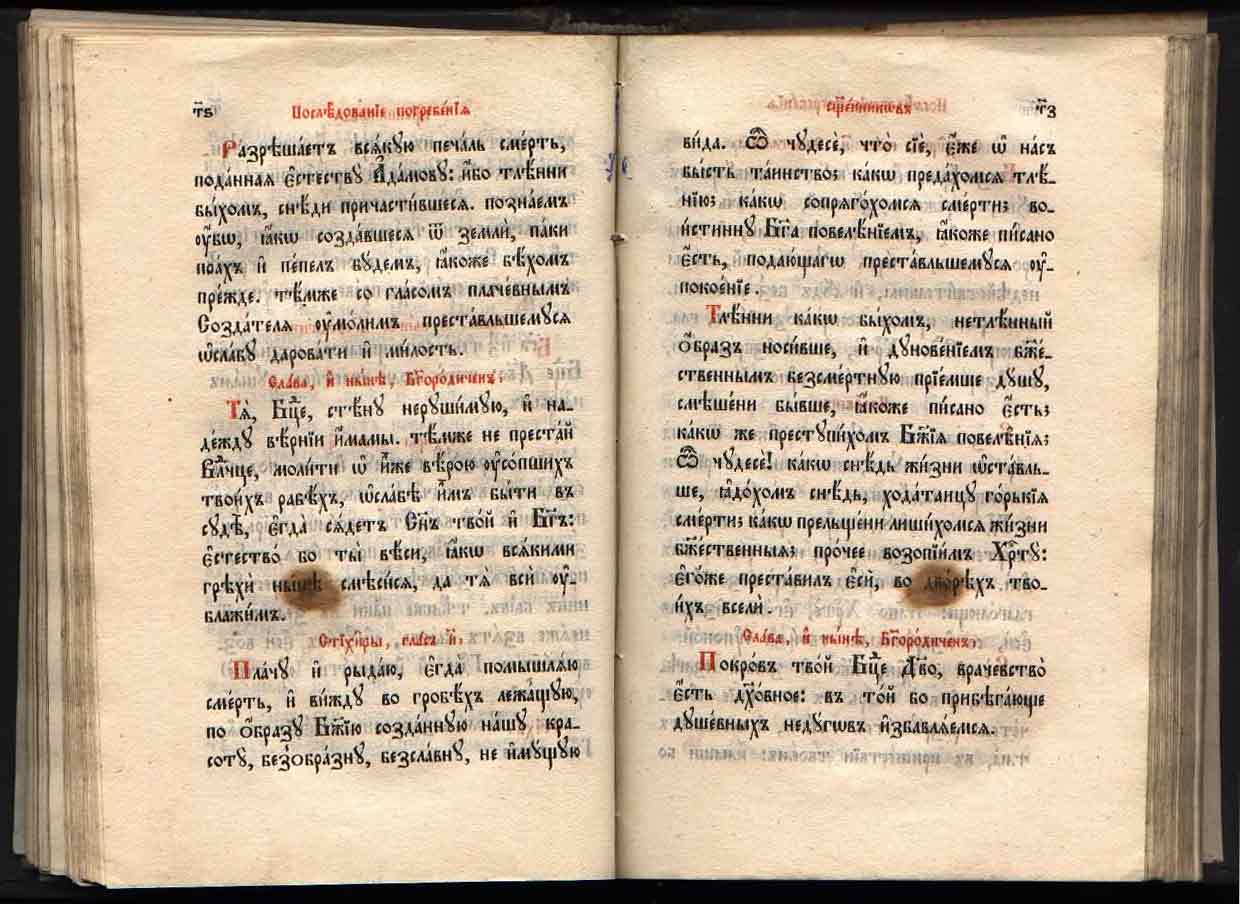 т҃ѕ
Послѣ́дованїе погребе́нїѧ
Разрѣша́етъ всѧ́кую печа́ль сме́рть,
пода́ннаѧ є҆стествꙋ̀ А҆да́мовꙋ: и҆́бо тлѣ́нни
бы́хомъ, снѣ́ди причасти́вшесѧ. позна́емъ
оу҆̀бѡ, ꙗ҆́кѡ созда́вшесѧ ѿ землѝ, па́ки
пра́хъ и҆ пе́пелъ бꙋ́демъ, ꙗ҆́коже бѣ́хомъ
пре́жде. тѣ́мже со гла́сомъ плаче́внымъ
Созда́телѧ оу҆мо́лимъ преста́вльшемꙋсѧ
ѡ҆сла́бꙋ дарова́ти и҆ ми́лость.
Сла́ва, и҆ ны́нѣ, Бг҃оро́диченъ:
Тѧ̀, Бц҃е, стѣ́нꙋ нерꙋши́мꙋю, и҆ на-
де́ждꙋ вѣ́рнїи и҆́мамы. тѣ́мже не преста́й
Влⷣчце, моли́ти ѡ҆ и҆̀же вѣ́рою оу҆со́пшихъ
твои́хъ рабѣ́хъ, ѡ҆сла́бѣ и҆̀мъ бы́ти въ
сꙋдѣ̀, є҆гда̀ сѧ́детъ Сн҃ъ тво́й и҆ Бг҃ъ:
є҆стество́ бо ты̀ вѣ́си, ꙗ҆́кѡ всѧ́кими
грѣхѝ ны́нѣ смѣси́сѧ, да тѧ̀ всѝ оу҆-
блажи́мъ.
Стїхи̑ры, гла́съ и҃:
Пла́чꙋ и҆ рыда́ю, є҆гда̀ помышлѧ́ю
сме́рть, и҆ ви́ждꙋ во гробѣ́хъ лежа́щꙋю,
по ѻ҆́бразꙋ Бж҃їю созда́ннꙋю на́шꙋ кра-
сотꙋ̀, безѻбра́знꙋ, безсла́внꙋ, не и҆мꙋ́щꙋю
сщ҃е́нникѡвъ
т҃з
ви́да. Ѽ чꙋдесѐ, что̀ сїѐ, є҆́же ѡ҆ на́съ
бы́сть та́инство; ка́кѡ преда́хомсѧ тлѣ́-
нїю; ка́кѡ сопрѧго́хомсѧ сме́рти; во-
и́стиннꙋ Бг҃а повелѣ́нїемъ, ꙗ҆́коже пи́сано
є҆́сть, подаю́щагѡ преста́вльшемꙋсѧ оу҆-
покое́нїе.
Тлѣ́нни ка́кѡ бы́хомъ, нетлѣ́нный
ѻ҆́бразъ носи́вше, и҆ дꙋнове́нїемъ бж҃е́-
ственнымъ безсме́ртнꙋю прїе́мше дꙋ́шꙋ,
смѣ́шени бы́вше, ꙗ҆́коже пи́сано є҆́сть;
ка́кѡ же престꙋпи́хомъ Бж҃їѧ повелѣ̑нїѧ;
Ѽ чꙋдесѐ! ка́кѡ снѣ́дь жи́зни ѡ҆ста́вль-
ше, ꙗ҆до́хомъ снѣ́дь, хода́таицꙋ го́рькїѧ
сме́рти; ка́кѡ прельще́ни лиши́хомсѧ жи́зни
бж҃е́ственныѧ; про́чее возопїи́мъ Хрⷭ҇тꙋ̀:
є҆го́же преста́вилъ є҆сѝ, во дво́рѣхъ тво-
и́хъ вселѝ.
Сла́ва, и҆ ны́нѣ, Бг҃оро́диченъ:
Покро́въ тво́й Бц҃е Дв҃о, врачевство̀
є҆́сть дꙋхо́вное: въ то́й бо прибѣга́юще
дꙋше́вныхъ недꙋ́гѡвъ и҆збавлѧ́емсѧ.